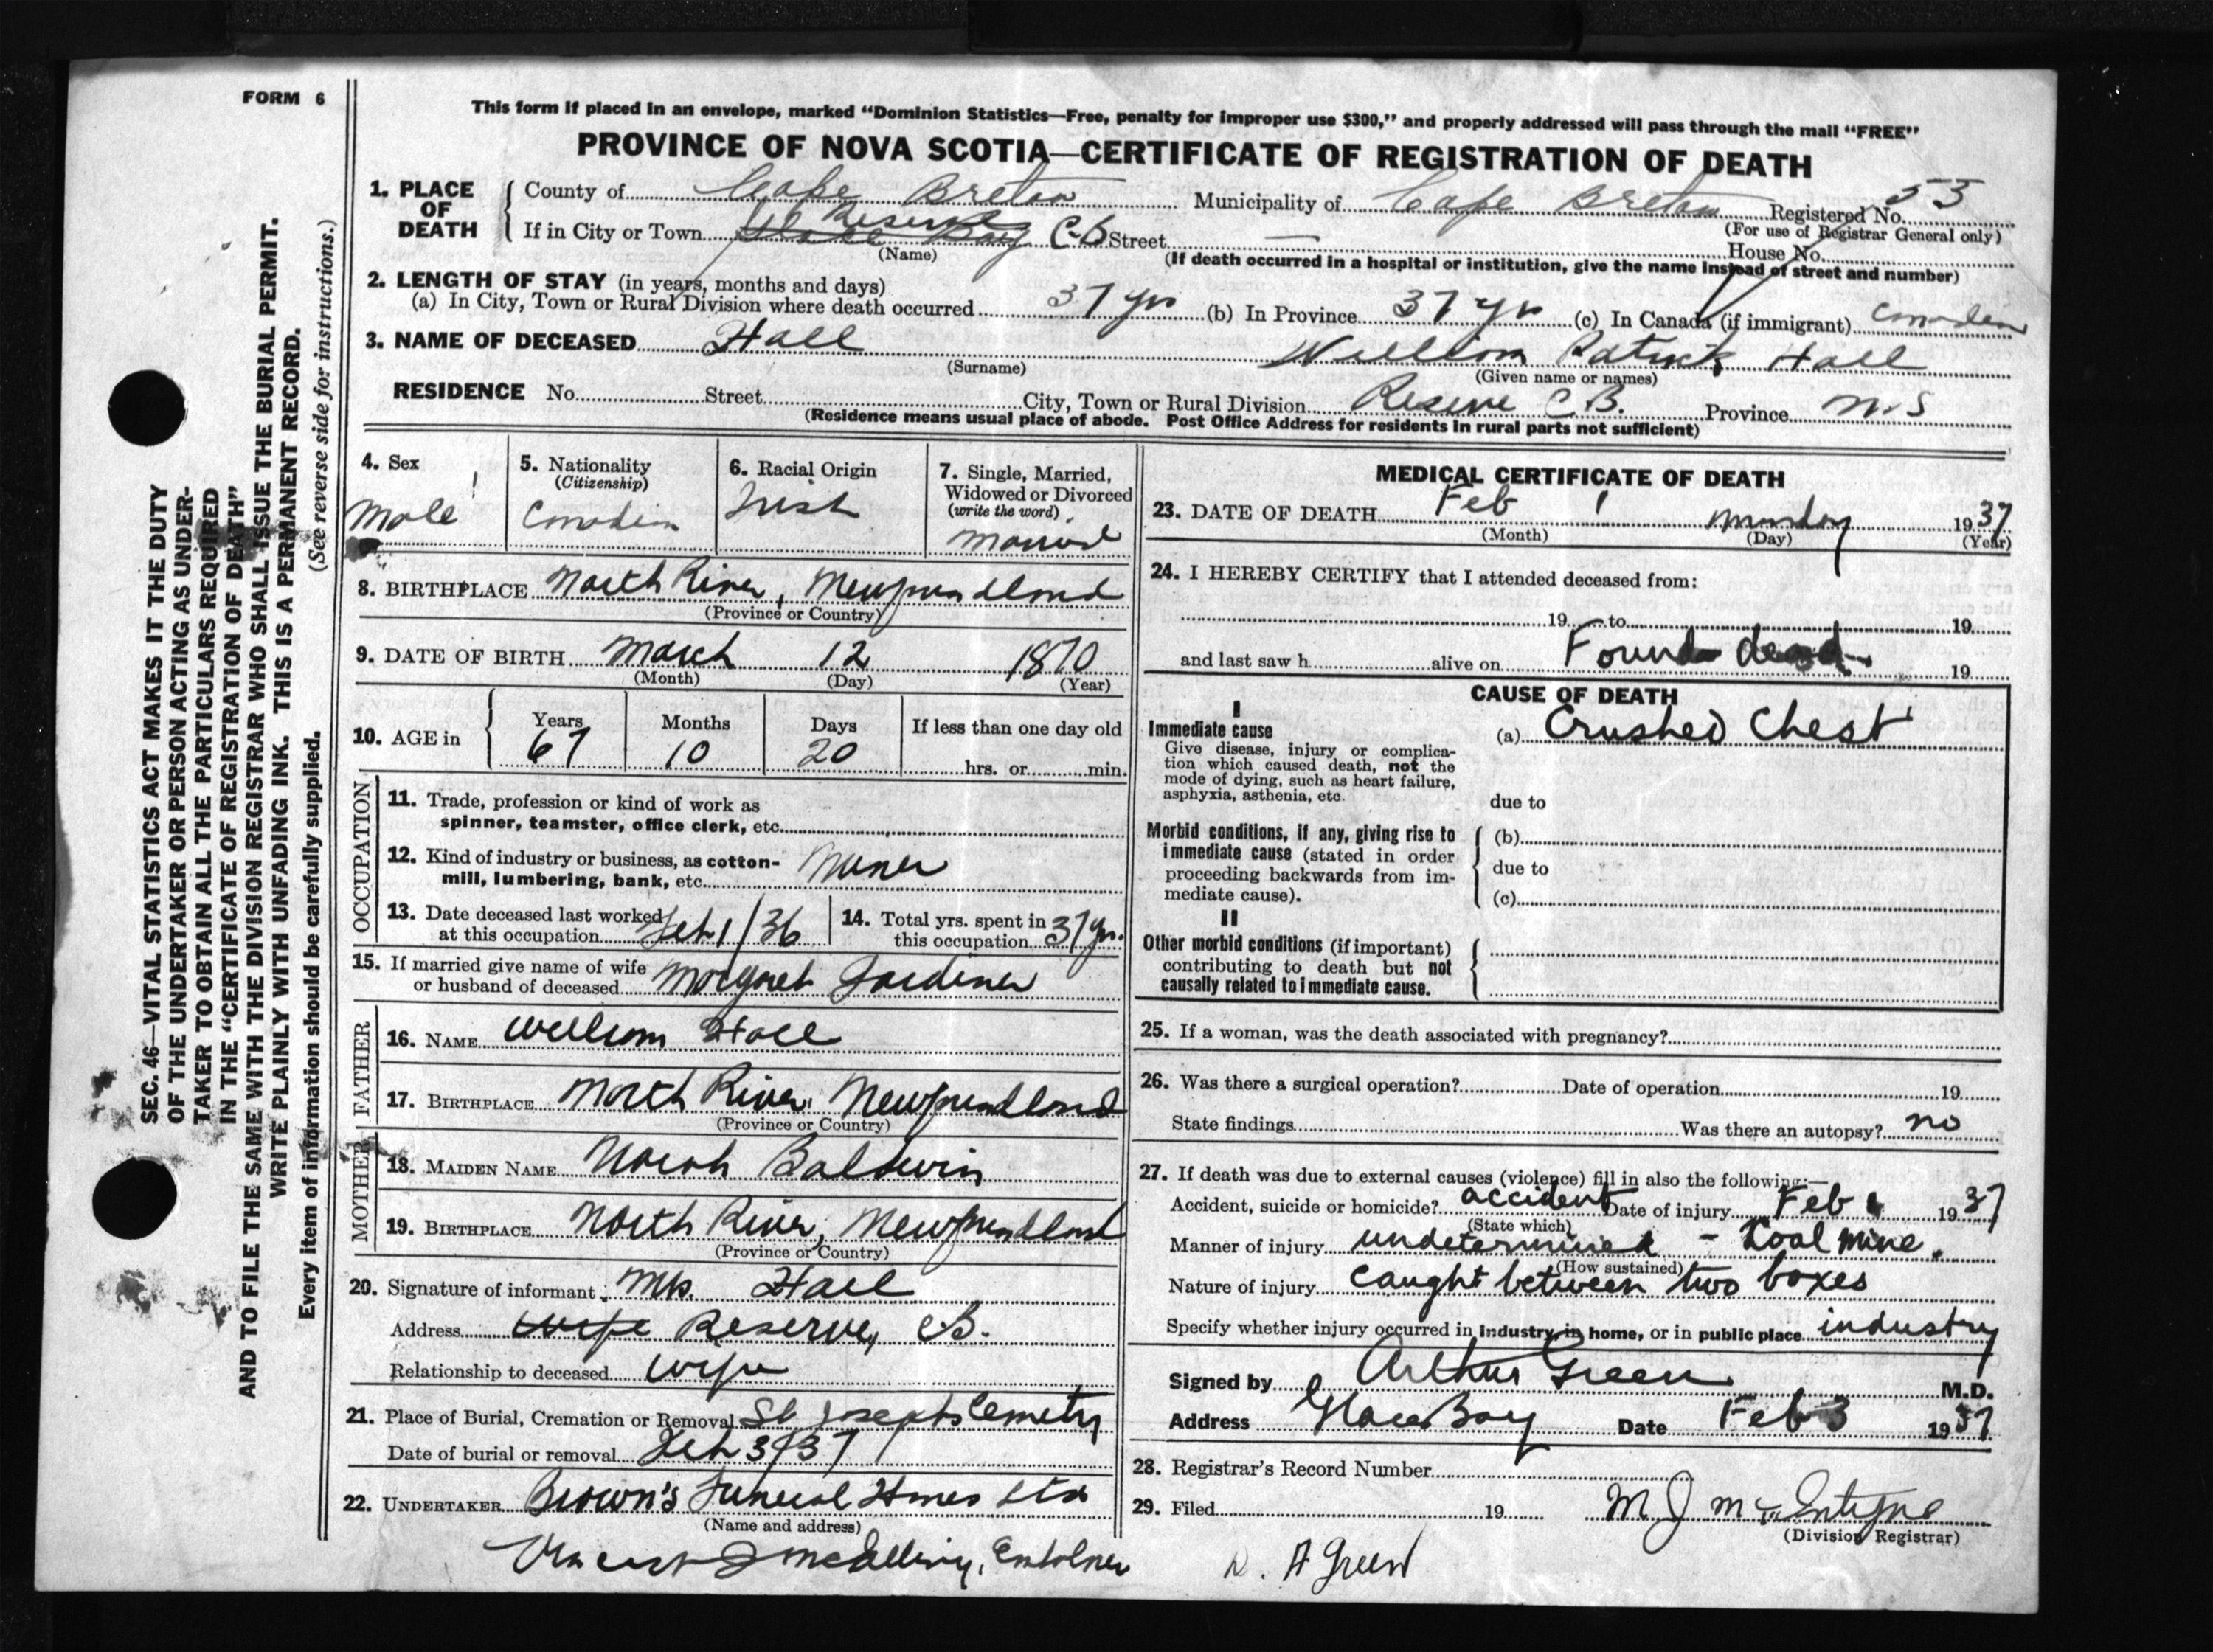 FORM 6
This form if placed in an envelope, marked "Dominion Statistics—Free, penalty for improper use $300," and properly addressed will pass through the mail "FREE"
PROVINCE OF NOVA SCOTIA—CERTIFICATE OF REGISTRATION OF DEATH
SEC. 46—VITAL STATISTICS ACT MAKES IT THE DUTY
OF THE UNDERTAKER OR PERSON ACTING AS UNDER-
TAKER TO OBTAIN ALL THE PARTICULARS REQUIRED
IN THE "CERTIFICATE OF REGISTRATION OF DEATH"
AND TO FILE THE SAME WITH THE DIVISION REGISTRAR WHO SHALL ISSUE THE BURIAL PERMIT.
WRITE PLAINLY WITH UNFADING INK. THIS IS A PERMANENT RECORD.
Every item of information should be carefully supplied. (See reverse side for instructions.)
1. PLACE OF DEATH County of Cape Breton Municipality of Cape Breton Registered No. 53
(For use of Registrar General only)
If in City or Town Glace Bay Reserve C-B Street — House No.
(Name) (If death occurred in a hospital or institution, give the name instead of street and number)
2. LENGTH OF STAY (in years, months and days)
(a) In City, Town or Rural Division where death occurred 37 yrs (b) In Province 37 yrs (c) In Canada (if immigrant) Canadian
3. NAME OF DECEASED Hall William Patrick Hall
(Surname) (Given name or names)
RESIDENCE No. Street City, Town or Rural Division Reserve C.B. Province N.S
(Residence means usual place of abode. Post Office Address for residents in rural parts not sufficient)
4. Sex Male
5. Nationality (Citizenship) Canadian
6. Racial Origin Irish
7. Single, Married, Widowed or Divorced (write the word) Married
8. BIRTHPLACE North River, Newfoundland
(Province or Country)
9. DATE OF BIRTH March 12 1870
(Month) (Day) (Year)
10. AGE in Years 67 Months 10 Days 20 If less than one day old hrs. or min.
OCCUPATION
11. Trade, profession or kind of work as
spinner, teamster, office clerk, etc.
12. Kind of industry or business, as cotton-
mill, lumbering, bank, etc. Miner
13. Date deceased last worked
at this occupation Feb 1/36
14. Total yrs. spent in
this occupation 37 yrs.
15. If married give name of wife
or husband of deceased Margaret Jardine
FATHER
16. NAME William Hall
17. BIRTHPLACE North River, Newfoundland
(Province or Country)
MOTHER
18. MAIDEN NAME Norah Baldwin
19. BIRTHPLACE North River, Newfoundland
(Province or Country)
20. Signature of informant Mrs. Hall
Address wife Reserve, C.B.
Relationship to deceased wife
21. Place of Burial, Cremation or Removal St Josephs Cemetry
Date of burial or removal Feb 3/37
22. UNDERTAKER Brown's Funeral Homes Ltd
(Name and address)
MEDICAL CERTIFICATE OF DEATH
23. DATE OF DEATH Feb 1 Monday 1937
(Month) (Day) (Year)
24. I HEREBY CERTIFY that I attended deceased from:
19 to 19
and last saw h alive on Found dead 19
CAUSE OF DEATH
I
Immediate cause
Give disease, injury or complica-
tion which caused death, not the
mode of dying, such as heart failure,
asphyxia, asthenia, etc.
(a) Crushed Chest
due to
Morbid conditions, if any, giving rise to
immediate cause (stated in order
proceeding backwards from im-
mediate cause).
(b)
due to
(c)
II
Other morbid conditions (if important)
contributing to death but not
causally related to immediate cause.
25. If a woman, was the death associated with pregnancy?
26. Was there a surgical operation? Date of operation 19
State findings Was there an autopsy? no
27. If death was due to external causes (violence) fill in also the following:—
Accident, suicide or homicide? accident Date of injury Feb 1 1937
(State which)
Manner of injury undetermined - Koal mine.
(How sustained)
Nature of injury caught between two boxes
Specify whether injury occurred in industry, in home, or in public place industry
Signed by Arthur Green M.D.
Address Glace Bay Date Feb 3 1937
28. Registrar's Record Number
29. Filed 19 M J McIntyre
(Division Registrar)
A Green